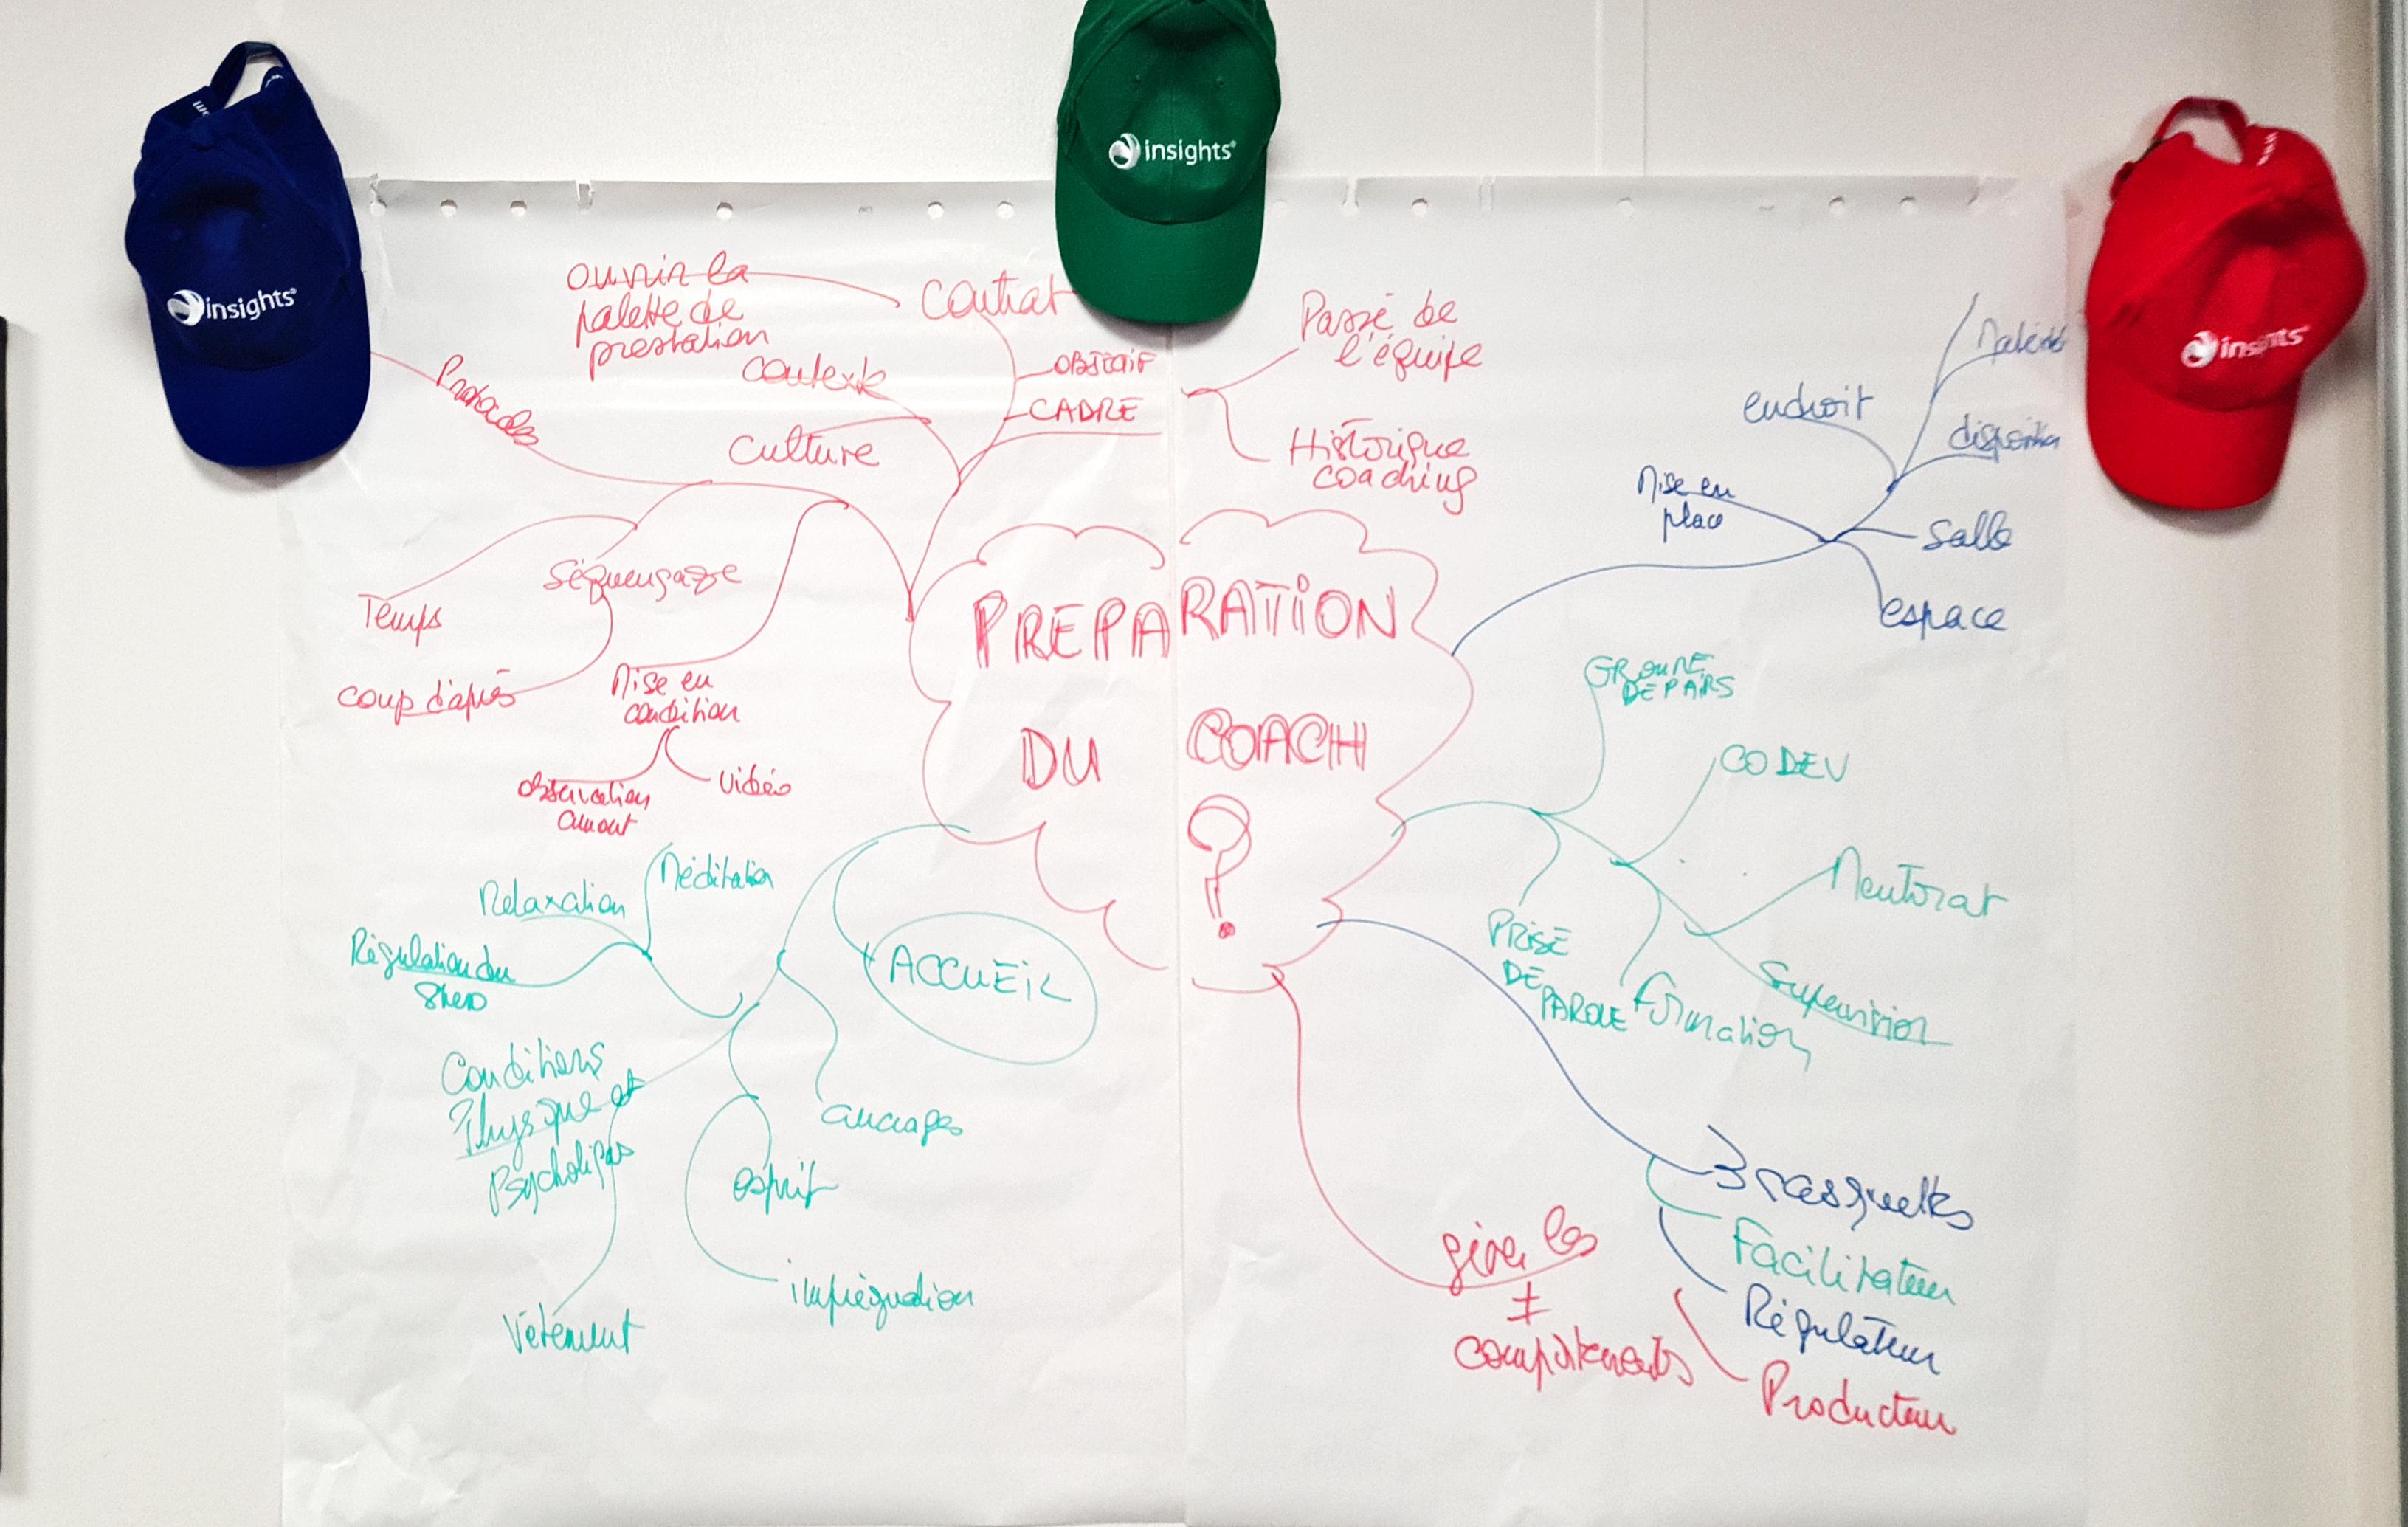 insights
insights
insights
ouvrir la
palette de
prestation
Contrat
OBJECTIF
CADRE
Contexte
Culture
Protocoles
Passé de
l'équipe
Historique
coaching
Temps
Séquençage
coup d'après
Mise en
condition
Observation
amont
Vidéo
PREPARATION
DU COACH
?
endroit
Matériel
Mise en
place
Salle
espace
GROUPE
DE PAIRS
CODEV
Mentorat
Supervision
Formation
PRISE
DE
PAROLE
Méditation
Relaxation
Régulation du
Stress
ACCUEIL
Conditions
Physique et
ancrages
esprit
imprégnation
Vêtement
gérer les
≠
comportements
3 casquettes
Facilitateur
Régulateur
Producteur